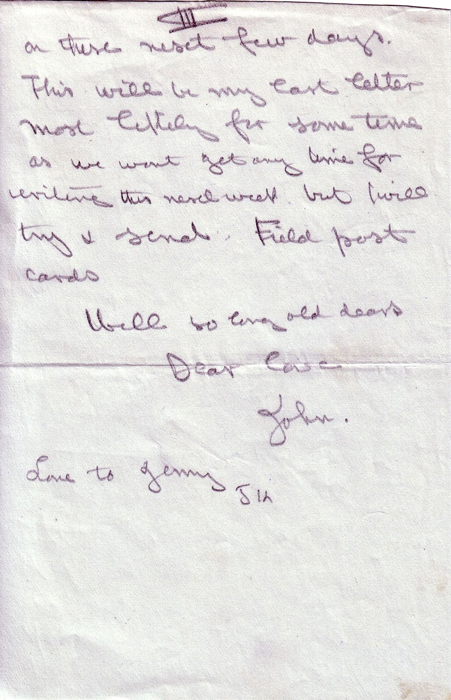 III
on these next few days.
This will be my last letter
most likely for some time
as we wont get any time for
writing this next week but I will
try & send Field post
cards
Well so long old dears
Dear love
John.
Love to Jenny